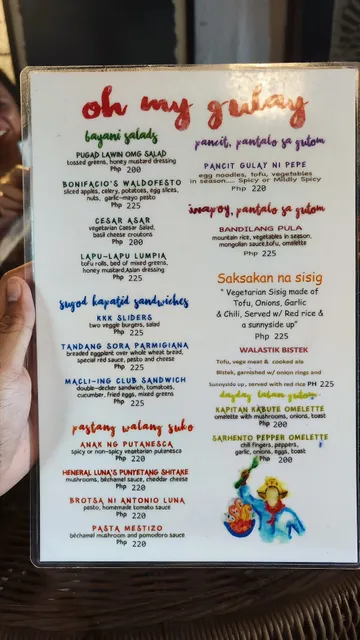 oh my gulay
bayani salads
PUGAD LAWIN OMG SALAD
tossed greens, honey mustard dressing
Php 200
BONIFACIO'S WALDOFESTO
sliced apples, celery, potatoes, egg slices,
nuts, garlic-mayo pesto
Php 225
CESAR ASAR
vegetarian Caesar Salad,
basil cheese croutons
Php 200
LAPU-LAPU LUMPIA
tofu rolls, bed of mixed greens,
honey mustard,Asian dressing
Php 225
sugod kapatid sandwiches
KKK SLIDERS
two veggie burgers, salad
Php 225
TANDANG SORA PARMIGIANA
breaded eggplant over whole wheat bread,
special red sauce, pesto and cheese
Php 225
MACLI-ING CLUB SANDWICH
double-decker sandwich, tomatoes,
cucumber, fried eggs, mixed greens
Php 225
pastang walang suko
ANAK NG PUTANESCA
spicy or non-spicy vegetarian putanesca
Php 220
HENERAL LUNA'S PUNYETANG SHITAKE
mushrooms, béchamel sauce, cheddar cheese
Php 220
BROTSA NI ANTONIO LUNA
pesto, homemade tomato sauce
Php 220
PASTA MESTIZO
béchamel mushroom and pomodoro sauce
Php 220
pancit, pantalo sa gutom
PANCIT GULAY NI PEPE
egg noodles, tofu, vegetables
in season.... Spicy or Mildly Spicy
Php 220
inapoy, pantalo sa gutom
BANDILANG PULA
mountain rice, vegetables in season,
mongolian sauce,tofu, omelette
Php 225
Saksakan na sisig
" Vegetarian Sisig made of
Tofu, Onions, Garlic
& Chili, Served w/ Red rice &
a sunnyside up"
Php 225
WALASTIK BISTEK
Tofu, vege meat & cooked ala
Bistek, garnished w/ onion rings and
Sunnyside up, served with red rice PH 225
dagdag laban gulay
KAPITAN KABUTE OMELETTE
omelette with mushrooms, onions, toast
Php 200
SARHENTO PEPPER OMELETTE
chili fingers, peppers,
garlic, onions, eggs, toast
Php 200